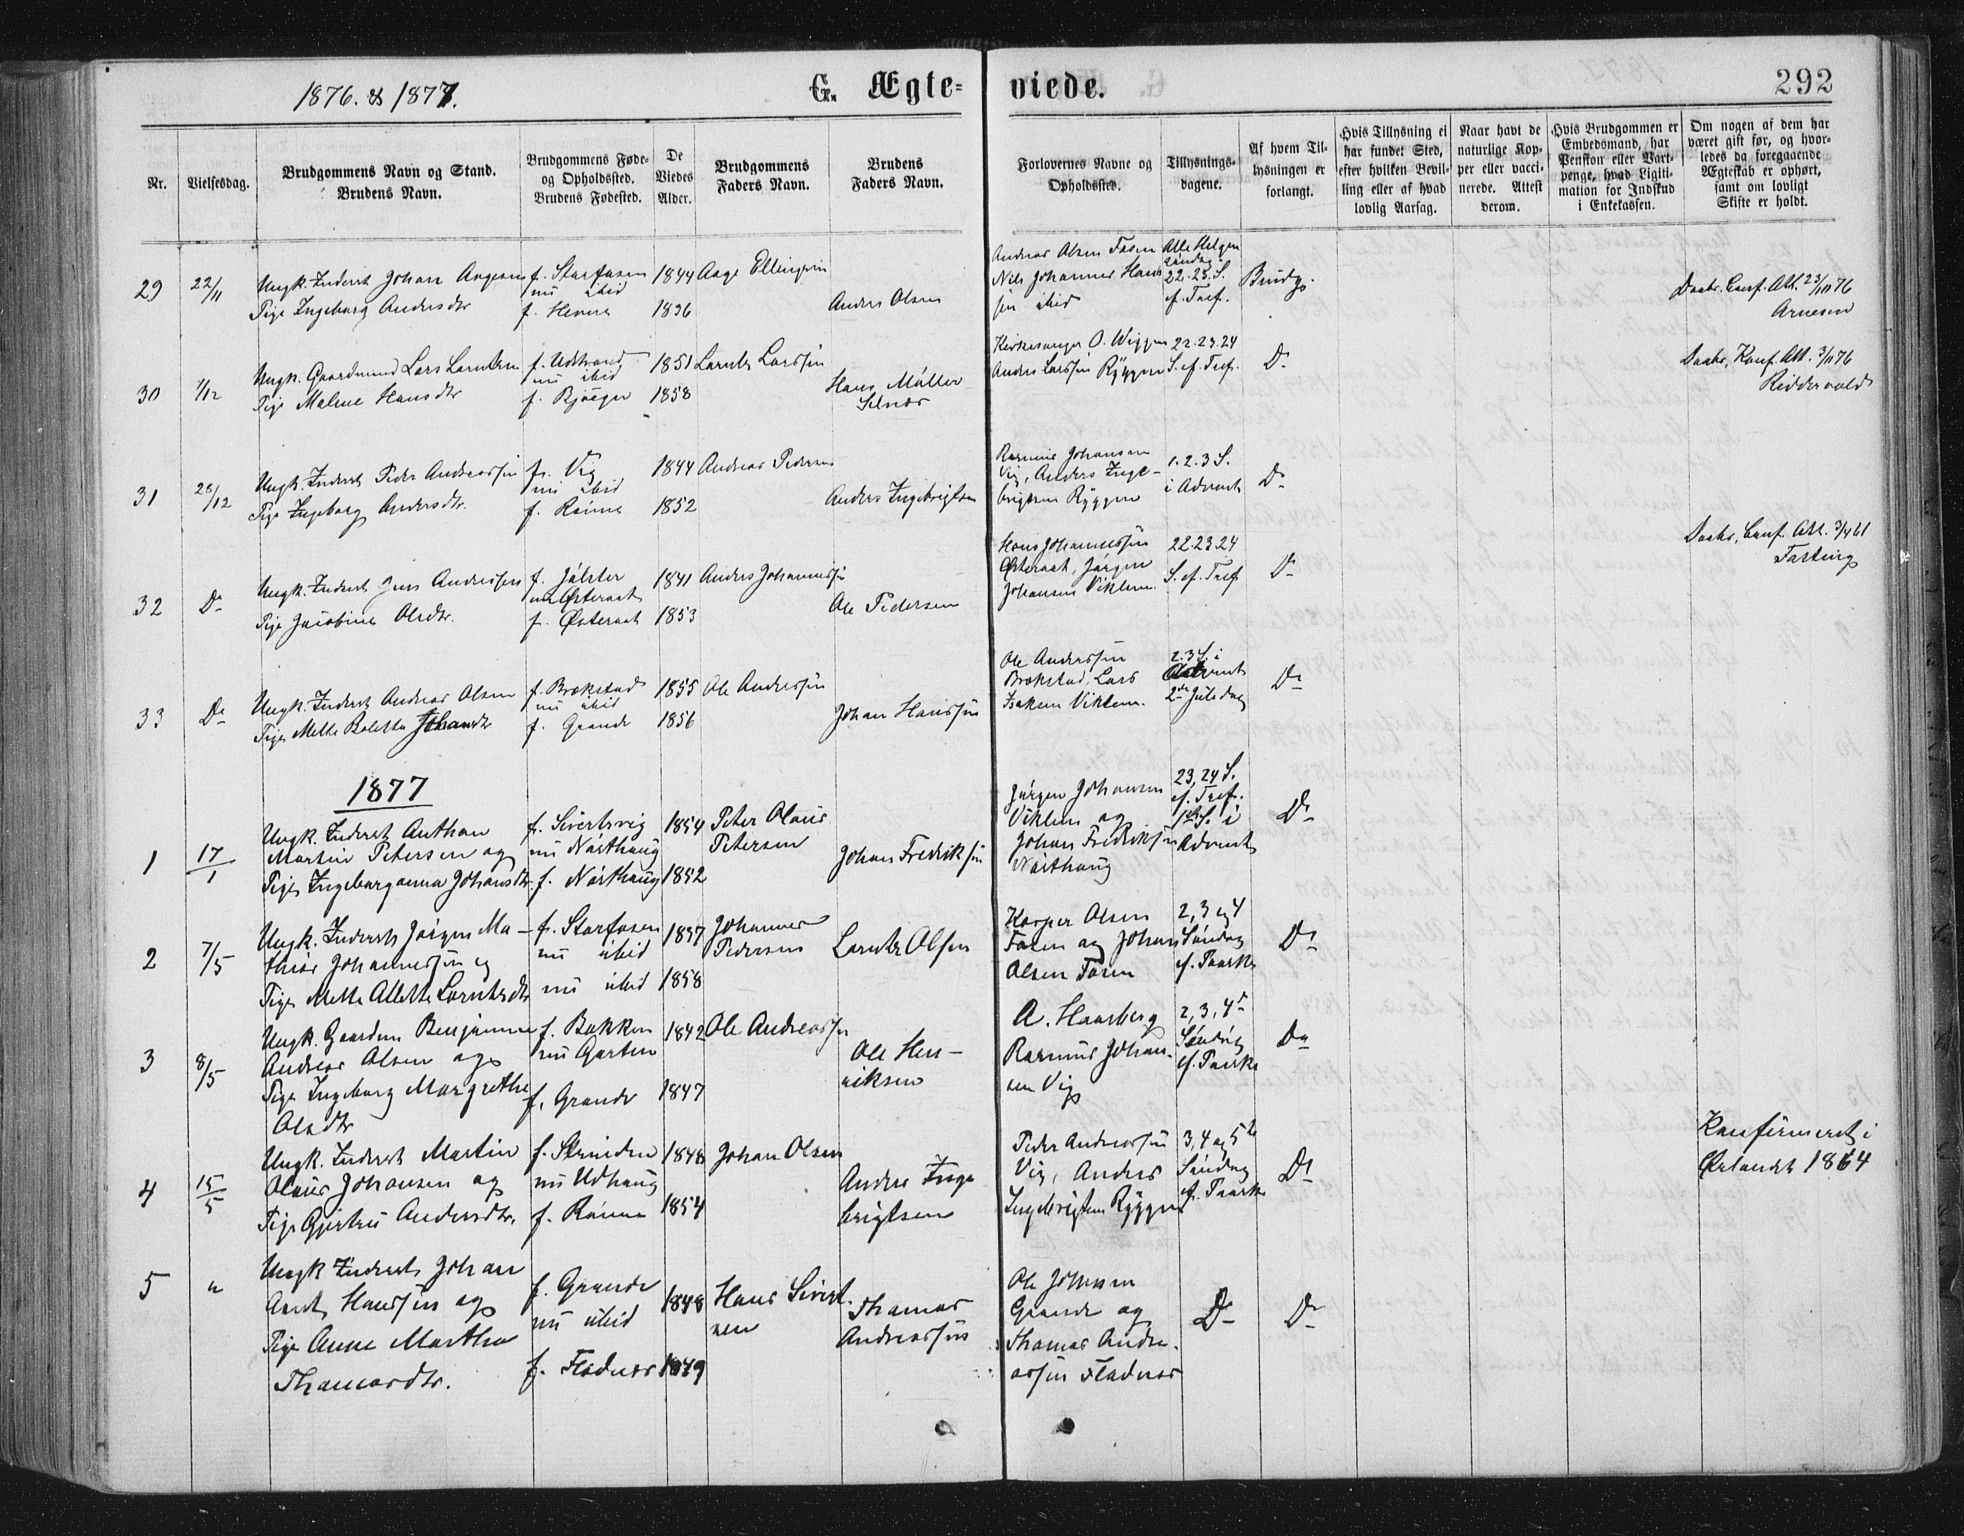 1876. & 1877.
G. Ægte-
viede.
292
Nr.
Vielsesdag.
Brudgommens Navn og Stand.
Brudens Navn.
Brudgommens Føde-
og Opholdssted.
Brudens Fødested.
De
Viedes
Alder.
Brudgommens
Faders Navn.
Brudens
Faders Navn.
Forlovernes Navne og
Opholdssted.
Tillysnings-
dagene.
Af hvem Til-
lysningen er
forlangt.
Hvis Tillysning ei
har fundet Sted,
efter hvilken Bevil-
ling eller af hvad
lovlig Aarsag.
Naar havt de
naturlige Kop-
per eller vacci-
nerede. Attest
derom.
Hvis Brudgommen er
Embedsmand, har
Pension eller Vart-
penge, hvad Ligiti-
mation for Indskud
i Enkekassen.
Om nogen af dem har
været gift før, og hvor-
ledes da foregaaende
Ægteskab er ophørt,
samt om lovligt
Skifte er holdt.
29
22/11
Ungk. Inderst Johan Aagesen
Pige Ingeborg Andersdtr
f. Storfosen
nu ibid
f. Hevne
1844
1836
Aage Ellingsen
Anders Olsen
Andreas Olsen Fosen
Nils Johannes Han-
sen ibid
Alle Helgen
Søndag
22. 23. S.
ef. Tref.
Brudg.
Daabs. Conf. Att. 23/10 76
Arnesen
30
1/12
Ungk. Gaardmand Lars Larntsen
Pige Malene Hansdtr
f. Udstrand
nu ibid
f. Bjøegn
1851
1858
Larnts Larssen
Hans Møller
Selnæs
Kirkesanger O. Wiggen
Anders Larssen Ryggen
22. 23. 24
S. ef. Tref.
Do
Daabs, Konf. Att. 3/11 76
Riddervold
31
28/12
Ungk. Inderst Peder Andreassen
Pige Ingeborg Andersdtr.
fr. Vig
nu ibid
f. Rømme
1844
1852
Andreas Pedersen
Anders Ingebrigtsen
Rasmus Johansen
Vig, Anders Inge-
brigtsen Ryggen
1. 2. 3 S.
i Advent
Do
32
Do
Ungk. Inderst Jens Andersen
Pige Jacobine Olsdtr.
f. Jølster
nu Østeraat
f. Østeraat
1841
1853
Anders Johannessen
Ole Pedersen
Hans Johannessen
Østeraat, Jørgen
Johansen Viklem.
22. 23. 24
S. ef. Tref
Do
Daabs, Conf. Att. 3/4 61
Fasting
33
Do
Ungk. Inderst Andreas Olsen
Pige Mette Bolette Johansdtr
f. Brekstad
nu ibid
f. Grande
1855
1856
Ole Andreassen
Johan Hanssen
Ole Anderssen
Brekstad, Lars
Isaksen Viklem.
2. 3 S. i
Advent
2den Juledag
Do
1877
1
17/1
Ungk. Inderst Anthon
Martin Petersen og
Pige Ingeborganna Johansdtr.
f. Sivertsvig
nu Nørthaug
f. Nørthaug
1854
1852
Peter Olaus
Petersen
Johan Fredriksen
Jørgen Johansen
Viklem og
Johan Fredriksen
Nørthaug
23, 24 S.
ef. Tref.
1ste S. i
Advent
Do
2
7/5
Ungk. Inderst Jørgen Ma-
thias Johannessen og
Pige Mette Alette Larntsdtr
f. Storfosen
nu ibid
nu ibid
1857
1858
Johannes
Pedersen
Larnts Olsen
Kasper Olsen
Fosen og Johan
Olsen Fosen
2, 3 og 4
Søndag
ef. Paaske
Do
3
8/5
Ungk. Gaardm. Benjamin
Andreas Olsen og
Pige Ingeborg Margrethe
Olsdtr
f. Bakken
nu Garten
f. Grande
1842
1847
Ole Andreassen
Ole Hen-
riksen
A. Haarberg
Rasmus Johan-
sen Vig
2, 3, 4de
Søndag
ef. Paaske
Do
4
15/5
Ungk. Inderst Martin
Olaus Johansen og
Pige Gjertru Andersdtr.
f. Skrinden
nu Udhaug
f. Rømme
1848
1854
Johan Olsen
Anders Inge
brigtsen
Peder Andreassen
Vig, Anders
Ingebrigtsen Ryggen
3, 4 og 5te
Søndag
ef. Paaske
Do
Konfirmeret i
Ørlandet 1864
5
"
Ungk Inderst Johan
Arnt Hanssen og
Pige Anne Martha
Thomasdtr.
f. Grande
nu ibid
f. Fladnes
1848
1849
Hans Sivert-
sen
Thomas
Andreassen
Ole Johnsen
Grande og
Thomas Andre-
assen Fladnes
Do
Do